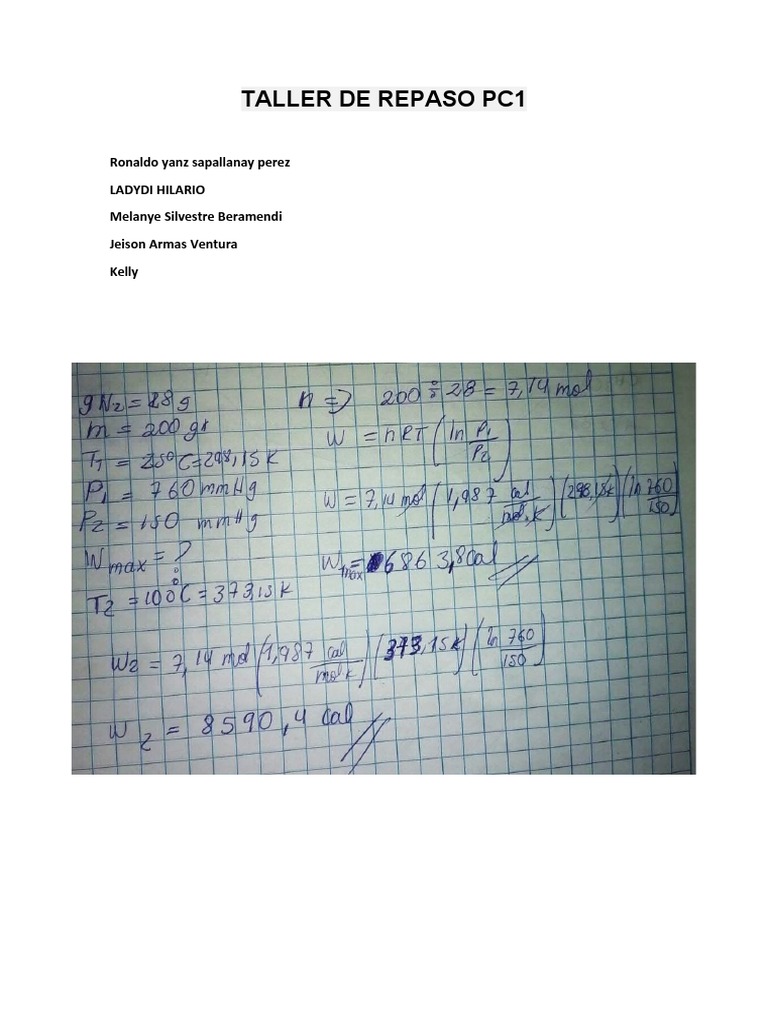 TALLER DE REPASO PC1
Ronaldo yanz sapallanay perez
LADYDI HILARIO
Melanye Silvestre Beramendi
Jeison Armas Ventura
Kelly
gN2 = 28g
m = 200 gr
T1 = 25°C = 298,15 K
P1 = 760 mmHg
P2 = 150 mmHg
Wmax = ?
T2 = 100°C = 373,15 K
n => 200 ÷ 28 = 7,14 mol
W = nRT (ln P1/P2)
W = 7,14 mol (1,987 cal/mol.K) (298,15K) (ln 760/150)
Wmax = 6863,8 Cal
W2 = 7,14 mol (1,987 cal/mol K) (373,15K) (ln 760/150)
W2 = 8590,4 cal